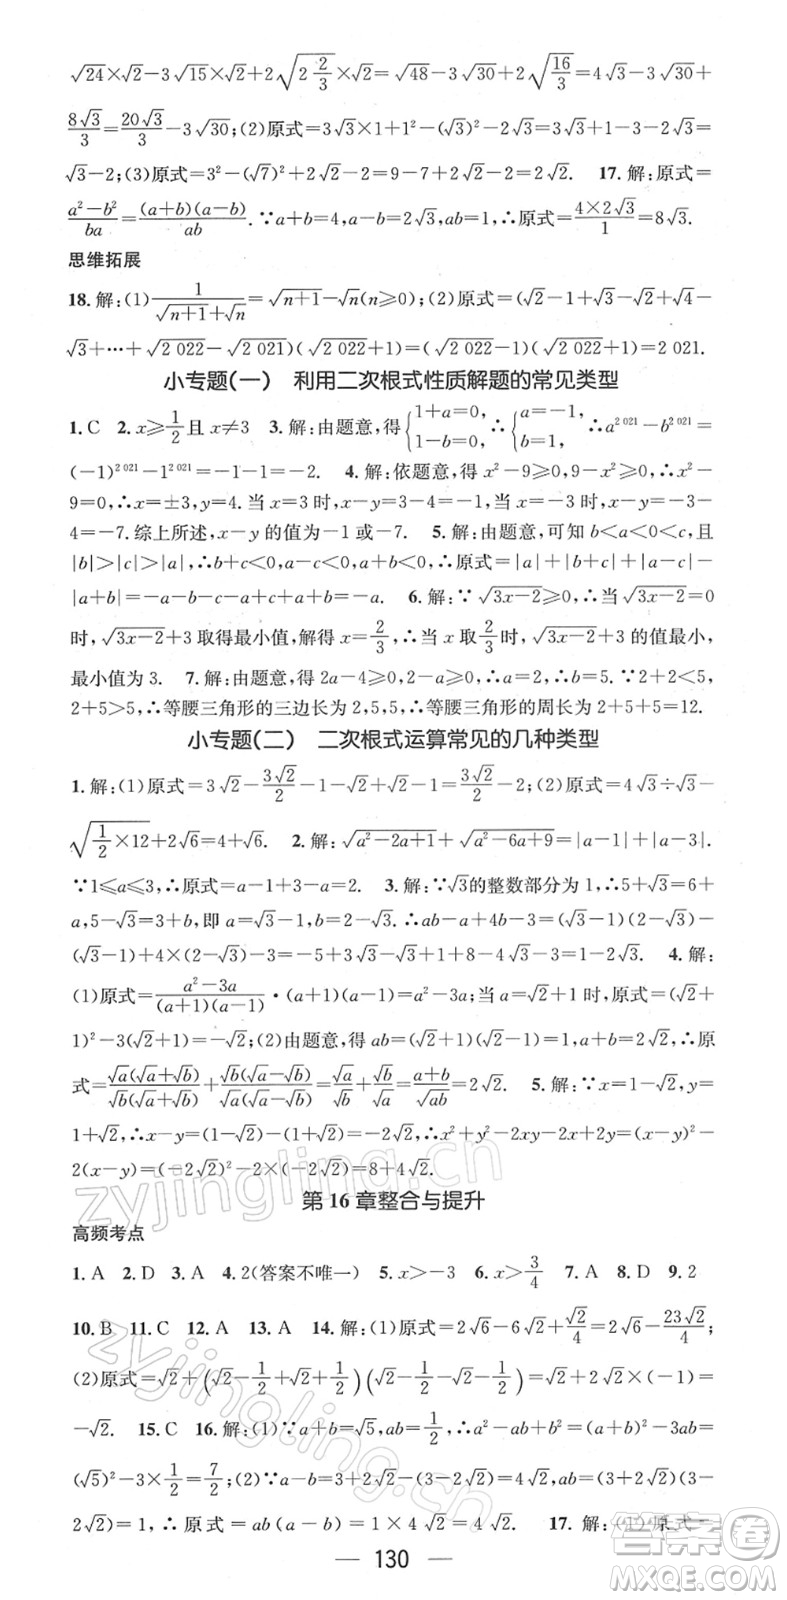 √24×√2－3√15×√2＋2√(2 2/3)×√2＝√48－3√30＋2√(16/3)＝4√3－3√30＋
8√3/3＝20√3/3－3√30;(2)原式＝3√3×1＋1²－(√3)²－2√3＝3√3＋1－3－2√3＝
√3－2;(3)原式＝3²－(√7)²＋2√2－2＝9－7＋2√2－2＝2√2. 17.解:原式＝
(a²－b²)/ba＝(a＋b)(a－b)/ab.∵a＋b＝4,a－b＝2√3,ab＝1,∴原式＝(4×2√3)/1＝8√3.
思维拓展
18.解:(1)1/(√(n＋1)＋√n)＝√(n＋1)－√n(n≥0);(2)原式＝(√2－1＋√3－√2＋√4－
√3＋…＋√2 022－√2 021)(√2 022＋1)＝(√2 022－1)(√2 022＋1)＝2 021.
小专题(一) 利用二次根式性质解题的常见类型
1.C 2.x≥1/2且x≠3 3.解:由题意,得{1＋a＝0,1－b＝0,∴{a＝－1,b＝1,∴a^2 021－b^2 021＝
(－1)^2 021－1^2 021＝－1－1＝－2. 4.解:依题意,得x²－9≥0,x²－
9＝0,∴x＝±3,y＝4.当x＝3时,x－y＝3－4＝－1,当x＝－3时,x－y＝－3－
4＝－7.综上所述,x－y的值为－1或－7. 5.解:由题意,可知b＜a＜0＜c,且
|b|＞|c|＞|a|,∴b＋c＜0,a－c＜0,a＋b＜0,∴原式＝|a|＋|b＋c|＋|a－c|－
|a＋b|＝－a－b－c－a＋c＋a＋b＝－a. 6.解:∵√(3x－2)≥0,∴当√(3x－2)＝0
时,√(3x－2)＋3取得最小值,解得x＝2/3,∴当x取2/3时,√(3x－2)＋3的值最小,
最小值为3. 7.解:由题意,得2a－4≥0,2－a≥0,∴a＝2,∴b＝5.∵2＋2＜5,
2＋5＞5,∴等腰三角形的三边长为2,5,5,∴等腰三角形的周长为2＋5＋5＝12.
小专题(二) 二次根式运算常见的几种类型
1.解:(1)原式＝3√2－3√2/2－1－√2＋√2－1＝3√2/2－2;(2)原式＝4√3÷√3－
√(1/2×12)＋2√6＝4＋√6. 2.解:√(a²－2a＋1)＋√(a²－6a＋9)＝|a－1|＋|a－3|.
∵1≤a≤3,∴原式＝a－1＋3－a＝2. 3.解:∵√3的整数部分为1,∴5＋√3＝6＋
a,5－√3＝3＋b,即a＝√3－1,b＝2－√3.∴ab－a＋4b－3＝(√3－1)(2－√3)－
(√3－1)＋4×(2－√3)－3＝－5＋3√3－√3＋1＋8－4√3－3＝1－2√3. 4.解:
(1)原式＝(a²－3a)/((a＋1)(a－1))·(a＋1)(a－1)＝a²－3a;当a＝√2＋1时,原式＝(√2＋
1)²－3(√2＋1)＝－√2;(2)由题意,得ab＝(√2＋1)(√2－1)＝1,a＋b＝2√2,∴原
式＝√a(√a＋√b)/√b(√a＋√b)＋√b(√a－√b)/√a(√a－√b)＝√a/√b＋√b/√a＝(a＋b)/√ab＝2√2. 5.解:∵x＝1－√2,y＝
1＋√2,∴x－y＝(1－√2)－(1＋√2)＝－2√2,∴x²＋y²－2xy－2x＋2y＝(x－y)²－
2(x－y)＝(－2√2)²－2×(－2√2)＝8＋4√2.
第16章整合与提升
高频考点
1.A 2.D 3.A 4.2(答案不唯一) 5.x＞－3 6.x＞3/4 7.A 8.D 9.2
10.B 11.C 12.A 13.A 14.解:(1)原式＝2√6－6√2＋√2/4＝2√6－23√2/4;
(2)原式＝√2＋(√2－1/2＋√2＋1/2)(√2－1/2－√2－1/2)＝√2＋2√2×(－1)＝
－√2. 15.C 16.解:(1)∵a＋b＝√5,ab＝1/2,∴a²－ab＋b²＝(a＋b)²－3ab＝
(√5)²－3×1/2＝7/2;(2)∵a－b＝3＋2√2－(3－2√2)＝4√2,ab＝(3＋2√2)(3－
2√2)＝1,∴原式＝ab(a－b)＝1×4√2＝4√2. 17.解:(1)原式＝
— 130 —
zyjingling.cn
zyjingling.cn
答案圈
MXQE.COM